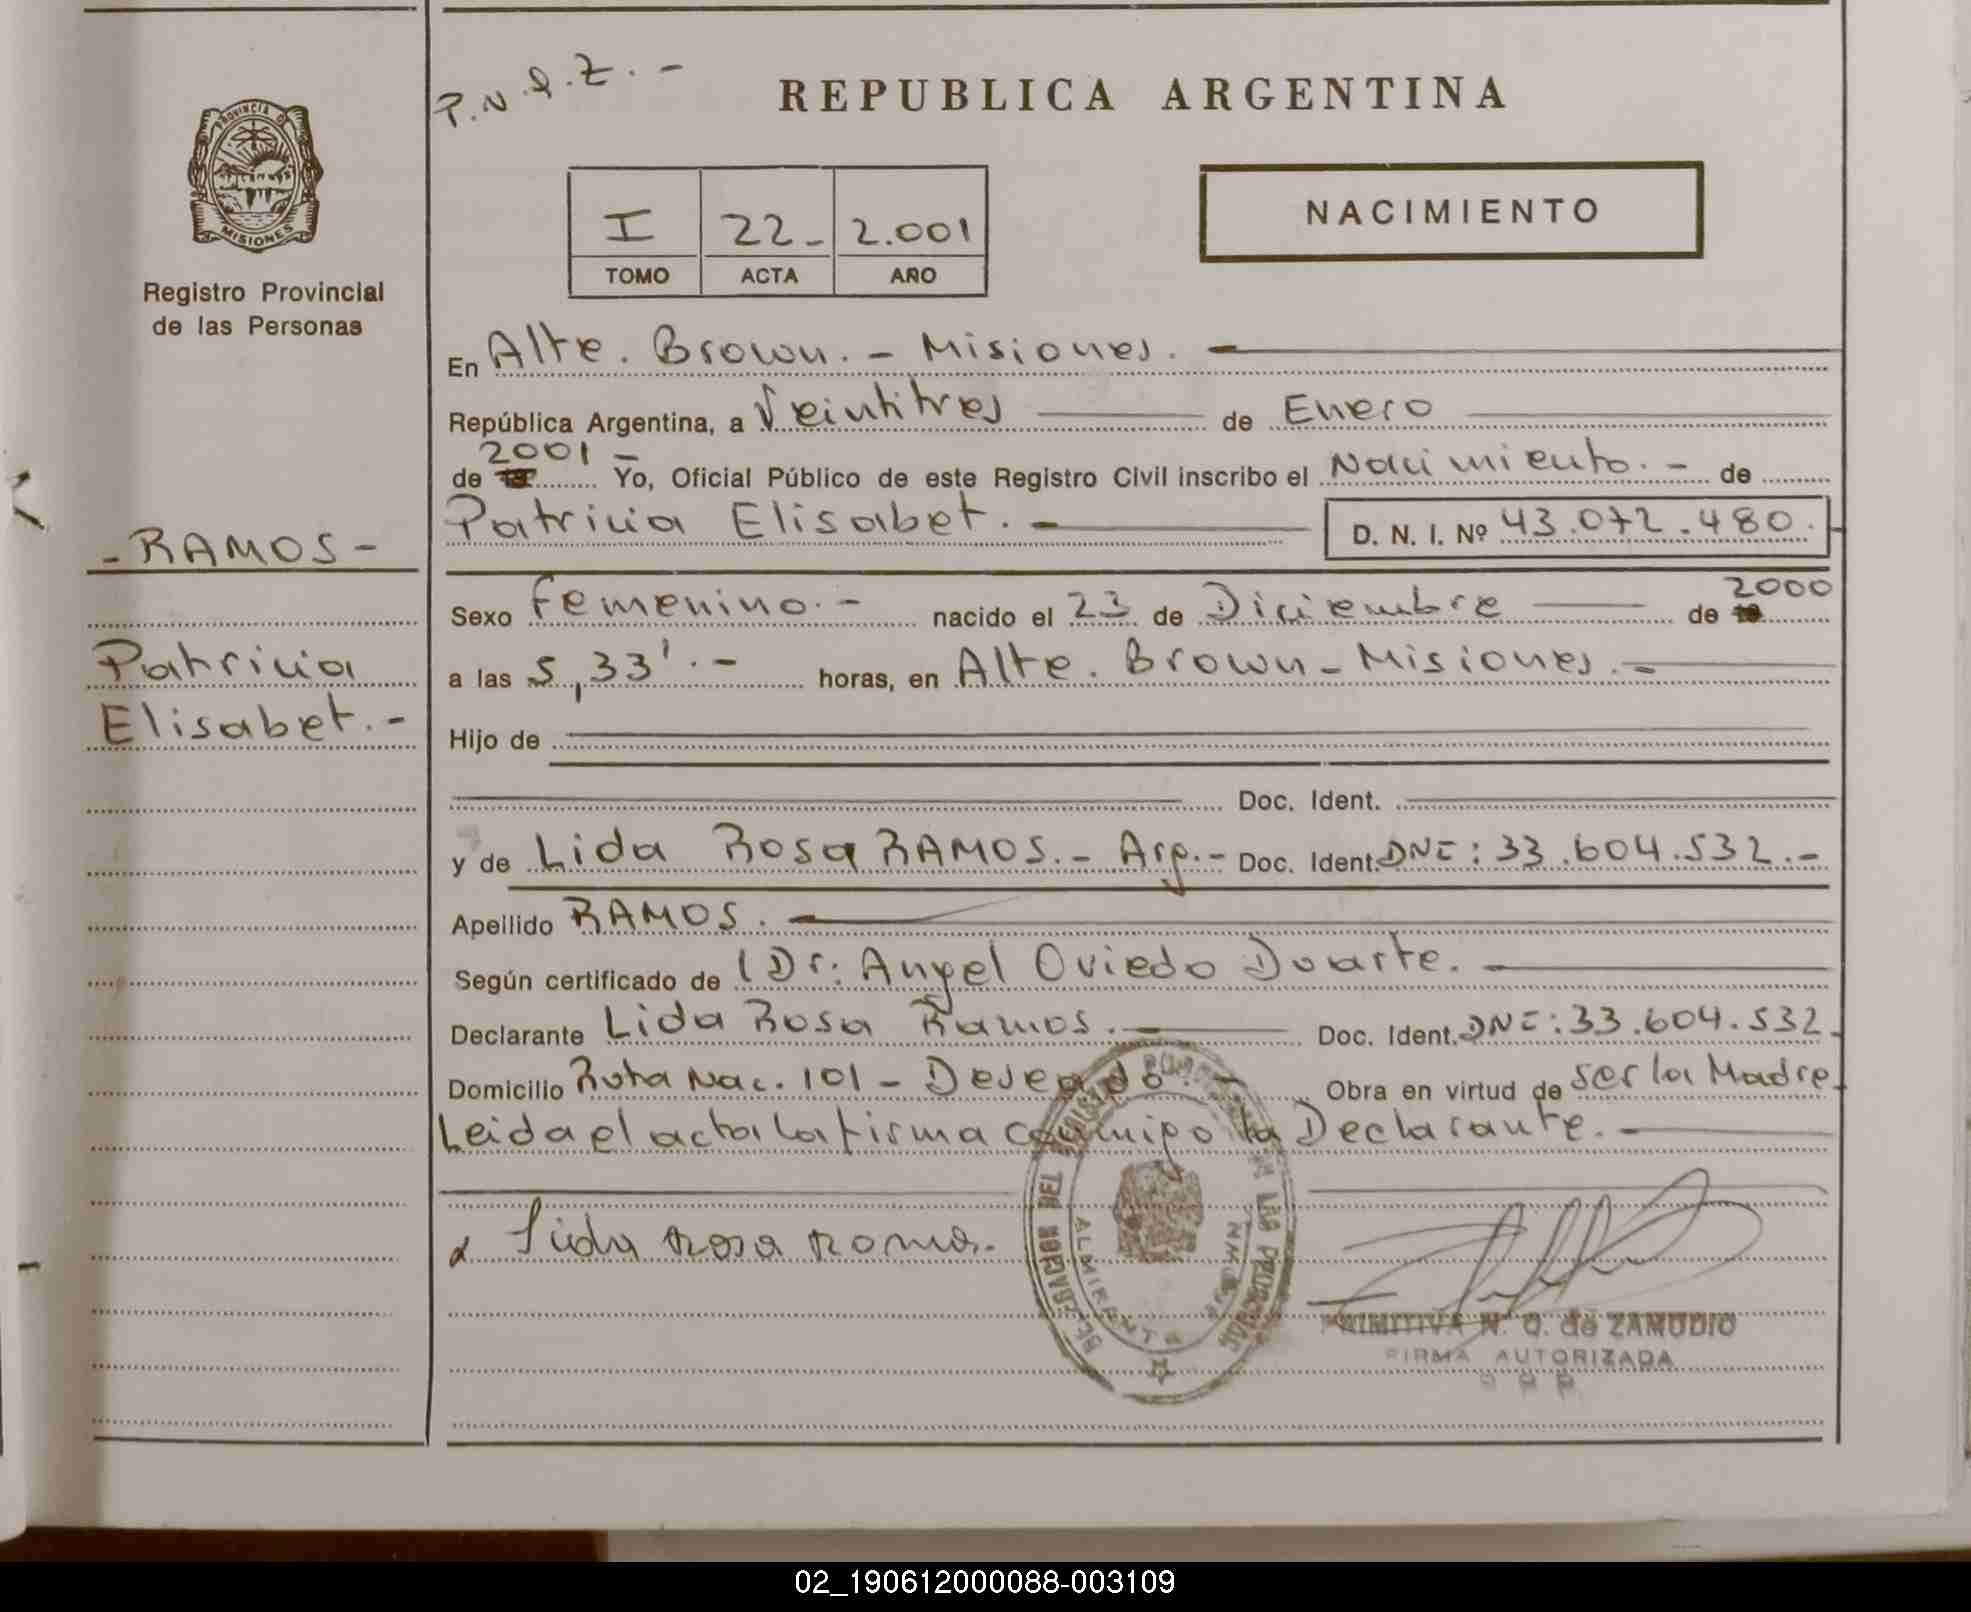 P.N.Q.Z.-
REPUBLICA ARGENTINA
PROVINCIA DE
MISIONES
Registro Provincial
de las Personas
I 22- 2.001
TOMO ACTA AÑO
NACIMIENTO
En Alte. Brown.- Misiones.-
República Argentina, a Veintitres de Enero
de 2001- Yo, Oficial Público de este Registro Civil inscribo el Nacimiento.- de
Patricia Elisabet.- D. N. I. Nº 43.072.480.
-RAMOS-
Patricia
Elisabet.-
Sexo Femenino.- nacido el 23 de Diciembre de 2000
a las 5,33'.- horas, en Alte. Brown-Misiones.-
Hijo de
Doc. Ident.
y de Lida Rosa RAMOS.- Arg.- Doc. Ident. DNI: 33.604.532.-
Apellido RAMOS.-
Según certificado de Dr: Angel Oviedo Duarte.-
Declarante Lida Rosa Ramos.- Doc. Ident. DNI: 33.604.532.
Domicilio Ruta Nac. 101- Deseado.- Obra en virtud de ser la Madre.
Leida el acta la firma conmigo la Declarante.-
Lida Rosa Ramos.
DELEGACION DEL REGISTRO PROVINCIAL DE LAS PERSONAS
ALMIRANTE BROWN
PRIMITIVA N. Q. de ZAMUDIO
FIRMA AUTORIZADA
02_190612000088-003109